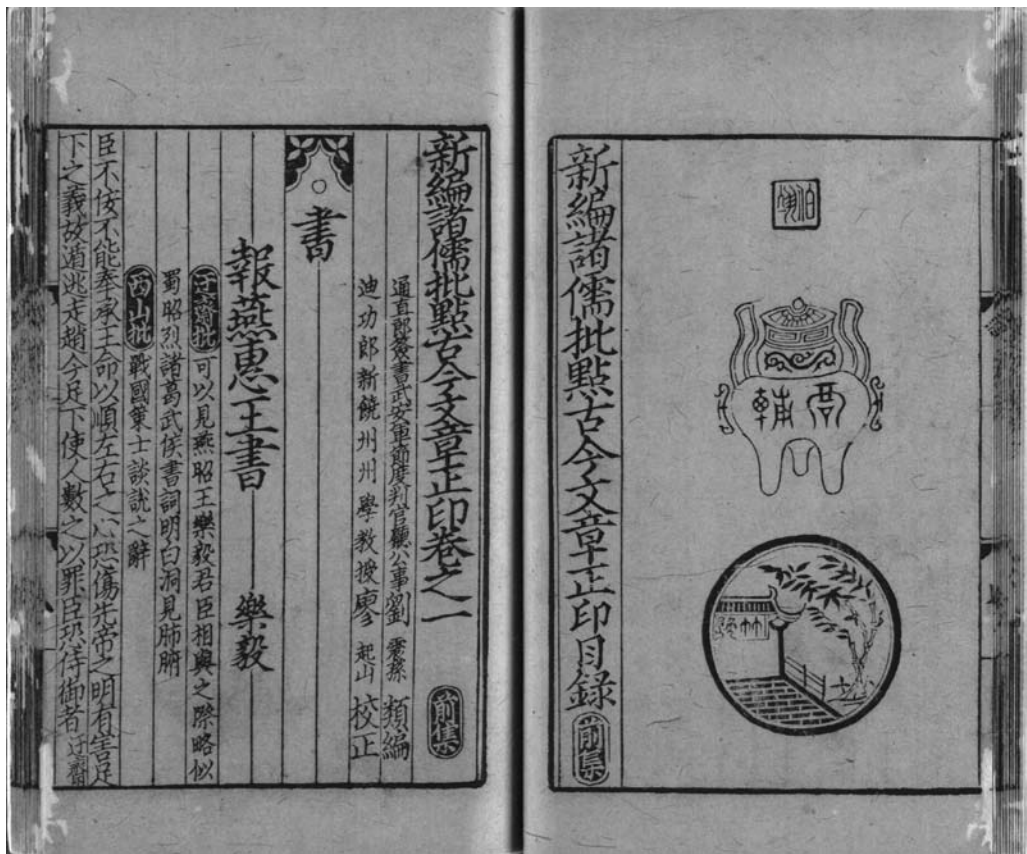 新編諸儒批點古今文章正印目錄 前集
新編諸儒批點古今文章正印卷之一 前集
通直郎簽書武安軍節度判官廳公事劉 震孫 類編
迪功郎新饒州州學教授廖 起山 校正
書
報燕惠王書 樂毅
迂齋批 可以見燕昭王樂毅君臣相與之際略似
蜀昭烈諸葛武侯書詞明白洞見肺腑
西山批 戰國策士談說之辭
臣不佞不能奉承王命以順左右之心恐傷先帝之明有害足
下之義故遁逃走趙今足下使人數之以罪臣恐侍御者 迂齋